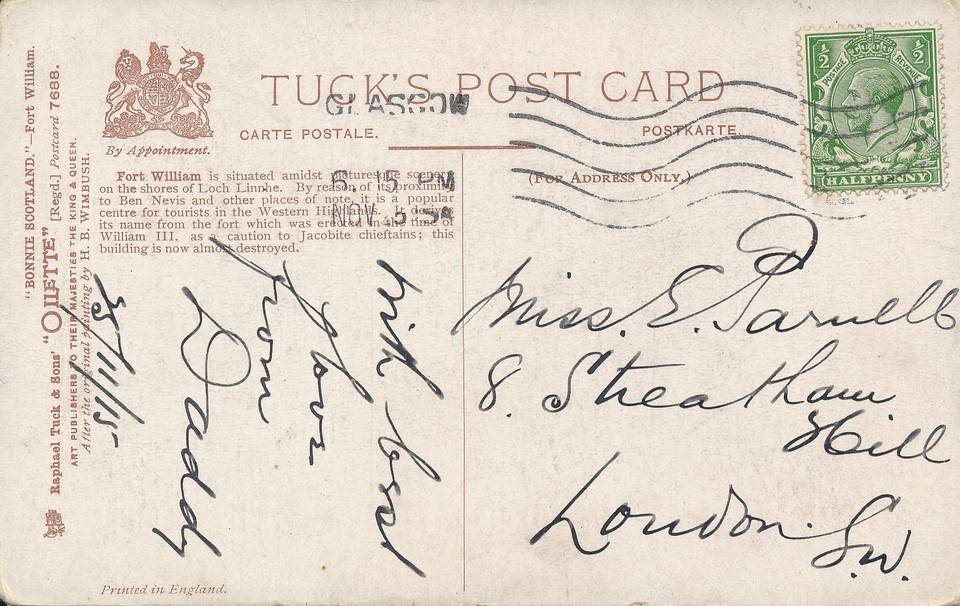 "BONNIE SCOTLAND."—Fort William.
Raphael Tuck & Sons' "OILETTE" [Regd.] Postcard 7688.
ART PUBLISHERS TO THEIR MAJESTIES THE KING & QUEEN.
After the original painting by H. B. WIMBUSH.
By Appointment.
TUCK'S POST CARD
CARTE POSTALE.
POSTKARTE.
(FOR ADDRESS ONLY.)
GLASGOW
6. 15 PM
NOV 5
½ ½
POSTAGE REVENUE
HALFPENNY
Fort William is situated amidst picturesque scenery
on the shores of Loch Linnhe. By reason of its proximity
to Ben Nevis and other places of note, it is a popular
centre for tourists in the Western Highlands. It derives
its name from the fort which was erected in the time of
William III. as a caution to Jacobite chieftains; this
building is now almost destroyed.
With best
love
from
Daddy
5/11/15
Miss. E. Parnell
8. Streatham
Hill
London. S.W.
Printed in England.